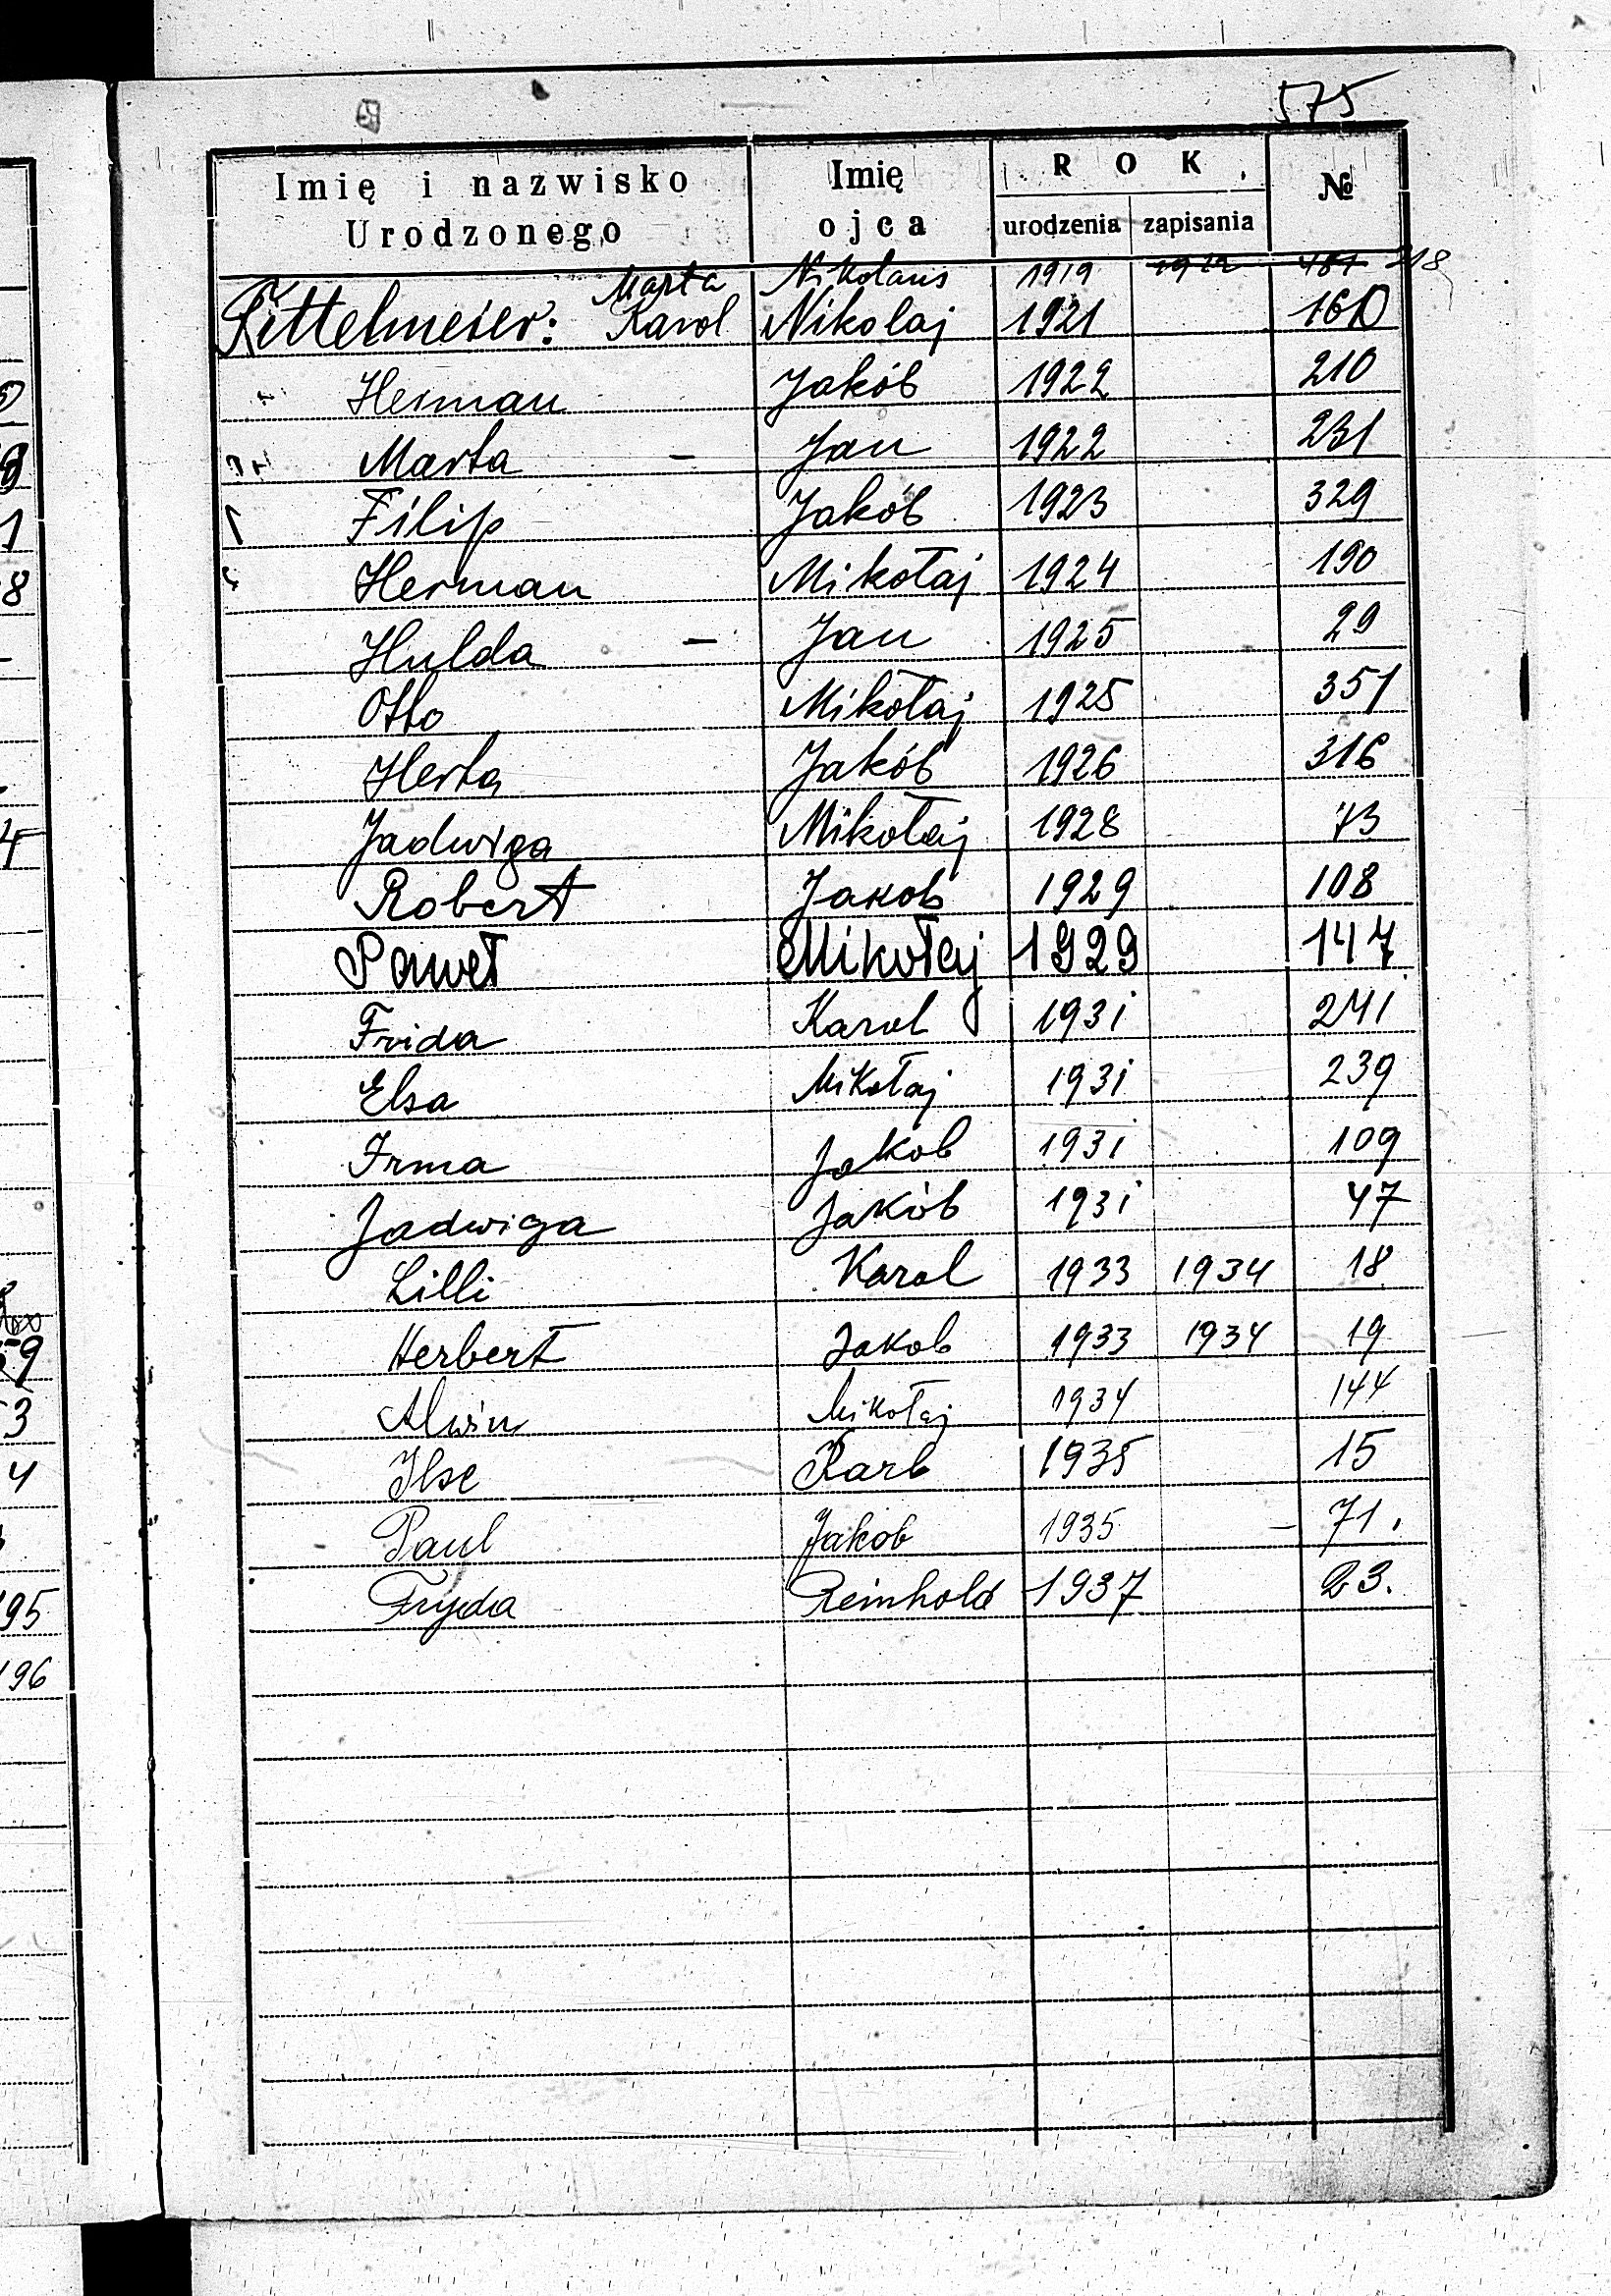 575
Imię i nazwisko Urodzonego Imię ojca ROK urodzenia zapisania №
Marta Nikolaus 1919 1922 481 218
Rittelmeier: Karol Nikolaj 1921 160
" Herman Jakób 1922 210
" " Marta - Jan 1922 231
Filip Jakób 1923 329
Herman Mikołaj 1924 190
Hulda - Jan 1925 29
Otto Mikołaj 1925 351
Herta Jakób 1926 316
Jadwiga Mikołaj 1928 73
Robert Jakob 1929 108
Paweł Mikołaj 1929 147
Frida Karol 1931 241
Elsa Mikołaj 1931 239
Irma Jakob 1931 109
Jadwiga Jakób 1931 47
Lilli Karol 1933 1934 18
Herbert Jakob 1933 1934 19
Alwin Mikołaj 1934 144
Ilse Karl 1935 15
Paul Jakob 1935 - 71.
Fryda Reinhold 1937 23.
8
1
8
4
59
3
4
95
196